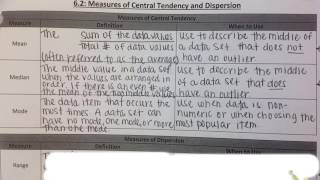 6.2: Measures of Central Tendency and Dispersion
Measures of Central Tendency
Definition When to Use
Mean
The sum of the data values
total # of data values
(often referred to as the average)
use to describe the middle
of a data set that does not
have an outlier.
Median
The middle value in a data set
when the values are arranged in
order. If there is an even # use
the mean of the two middle values
use to describe the middle
of a data set that does
have an outlier.
Mode
The data item that occurs the
most times. A data set can
have no mode, one mode, or more
than one mode.
use when data is non-
numeric or when choosing the
most popular item
Measures of Dispersion
Definition When to Use
Range